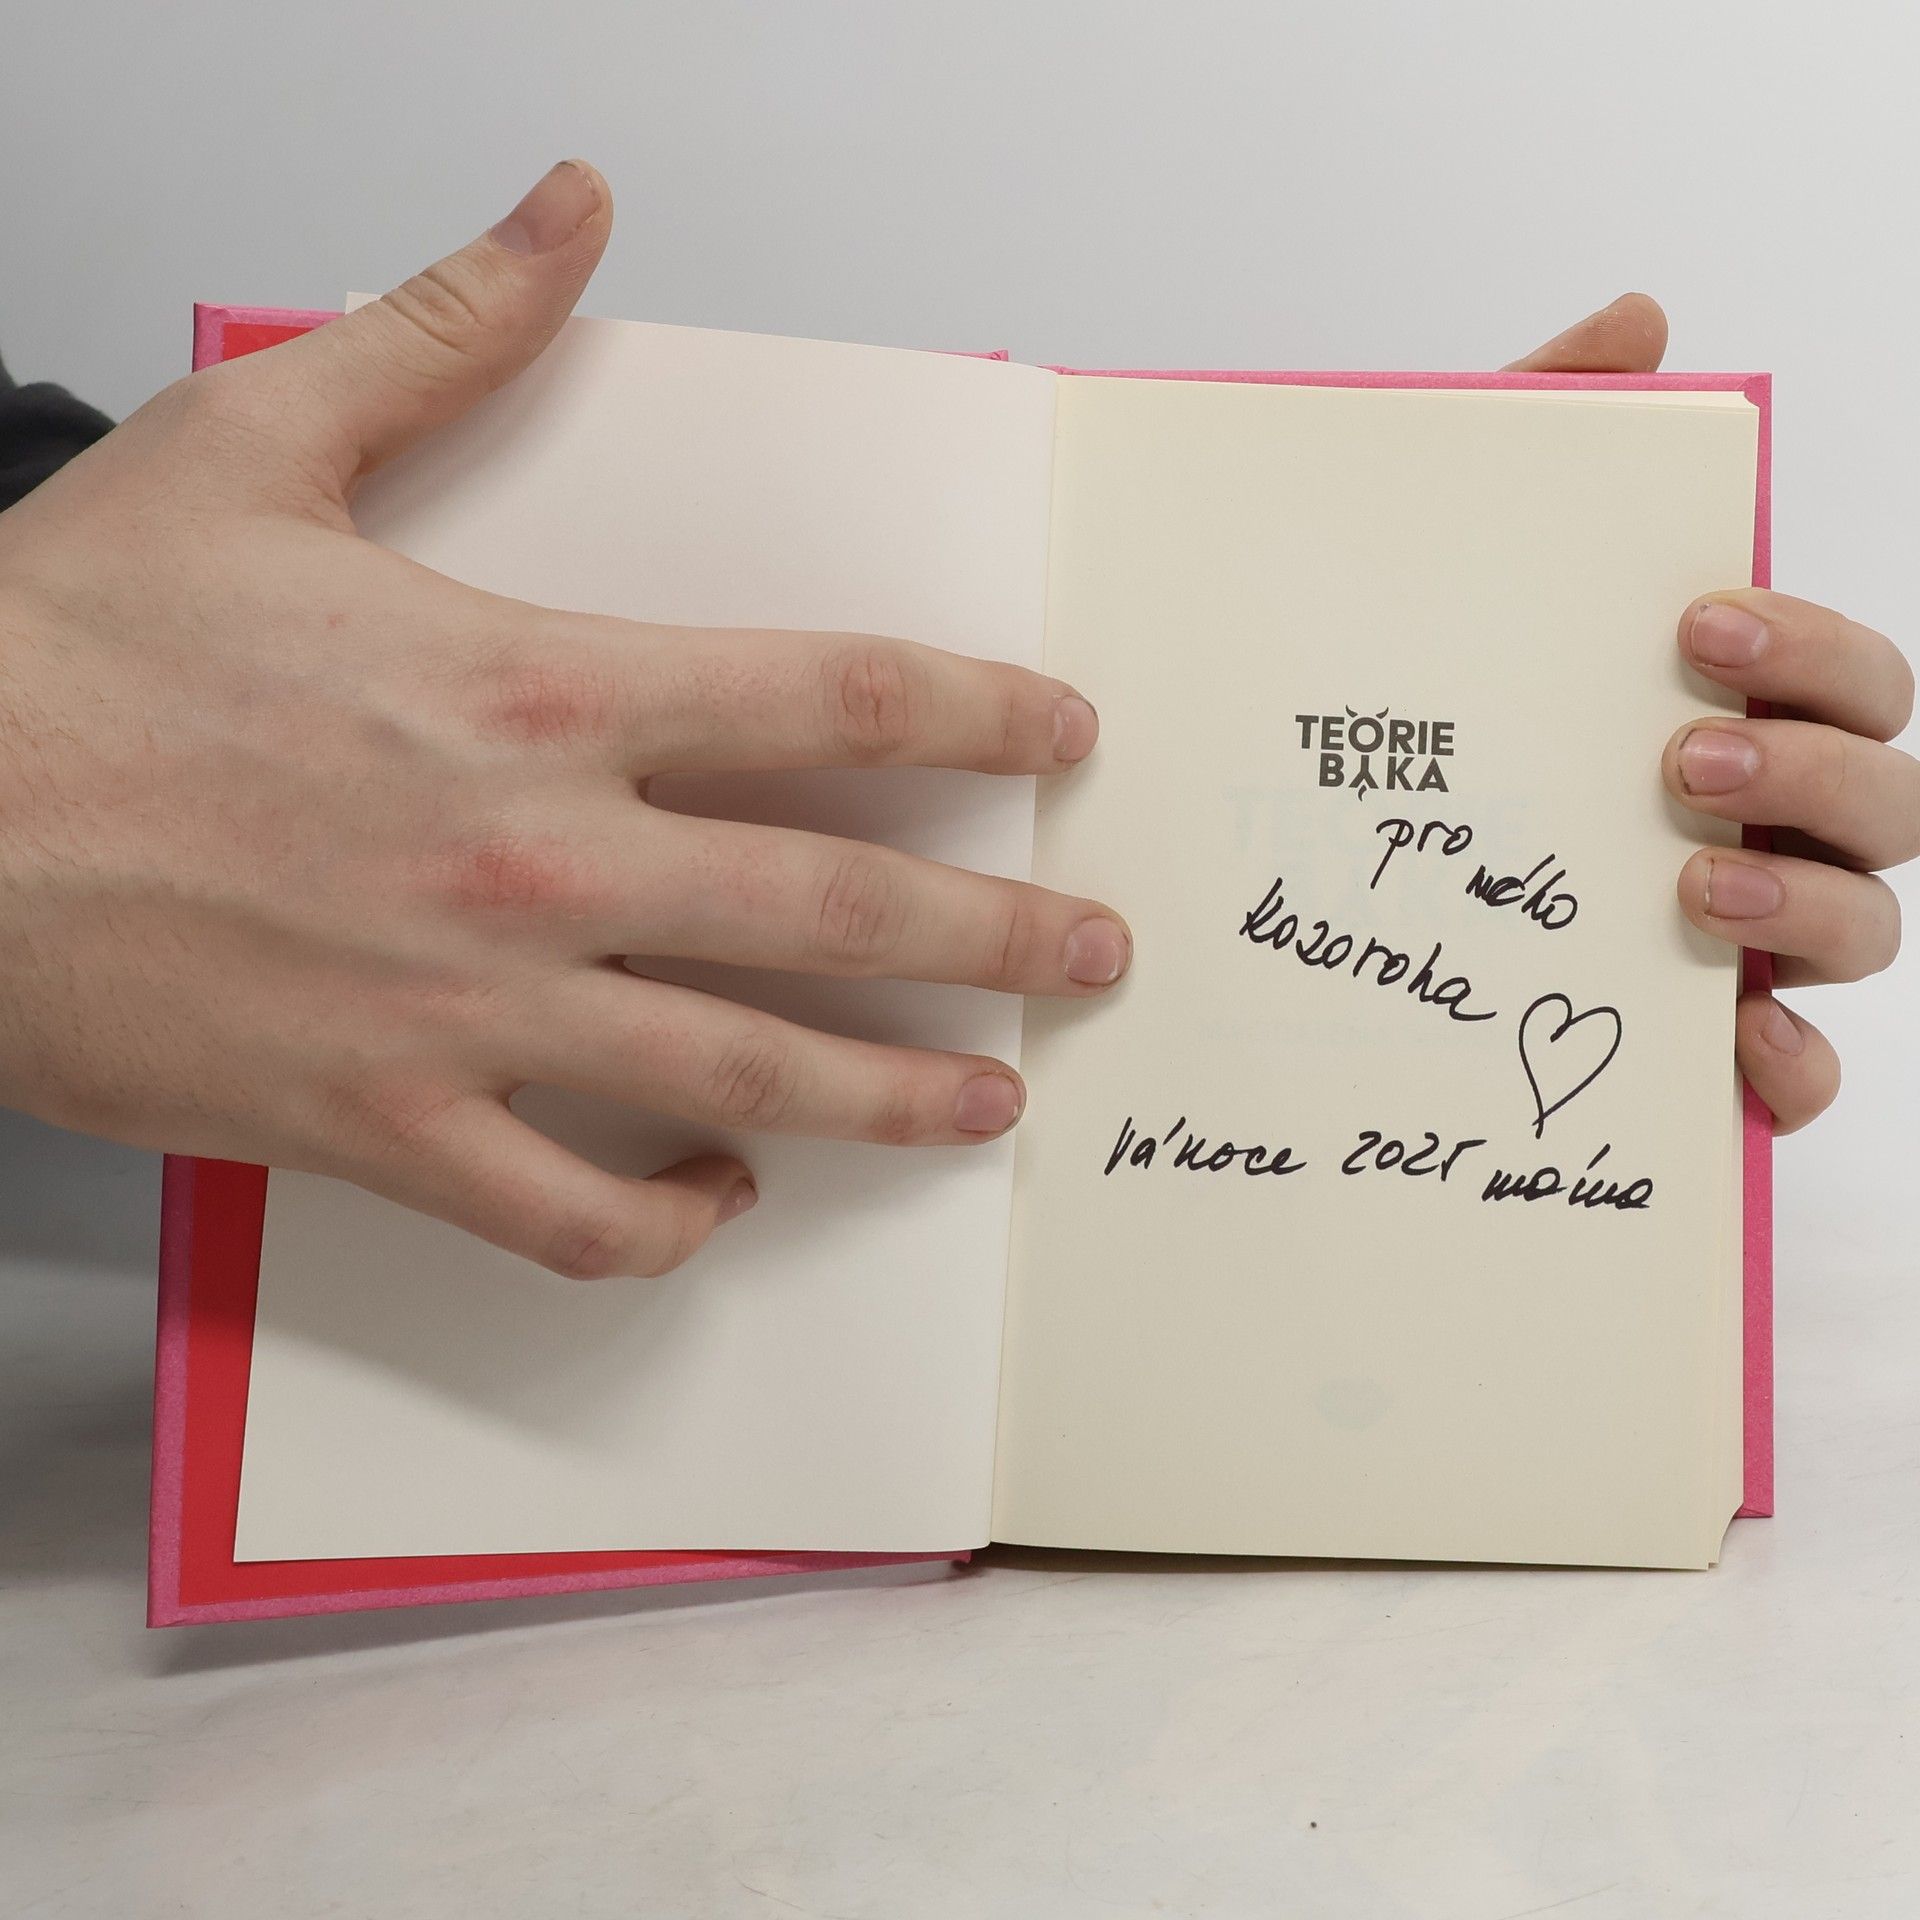 TEORIE
BYKA
pro mého
kozoroha
Vánoce 2025 máma